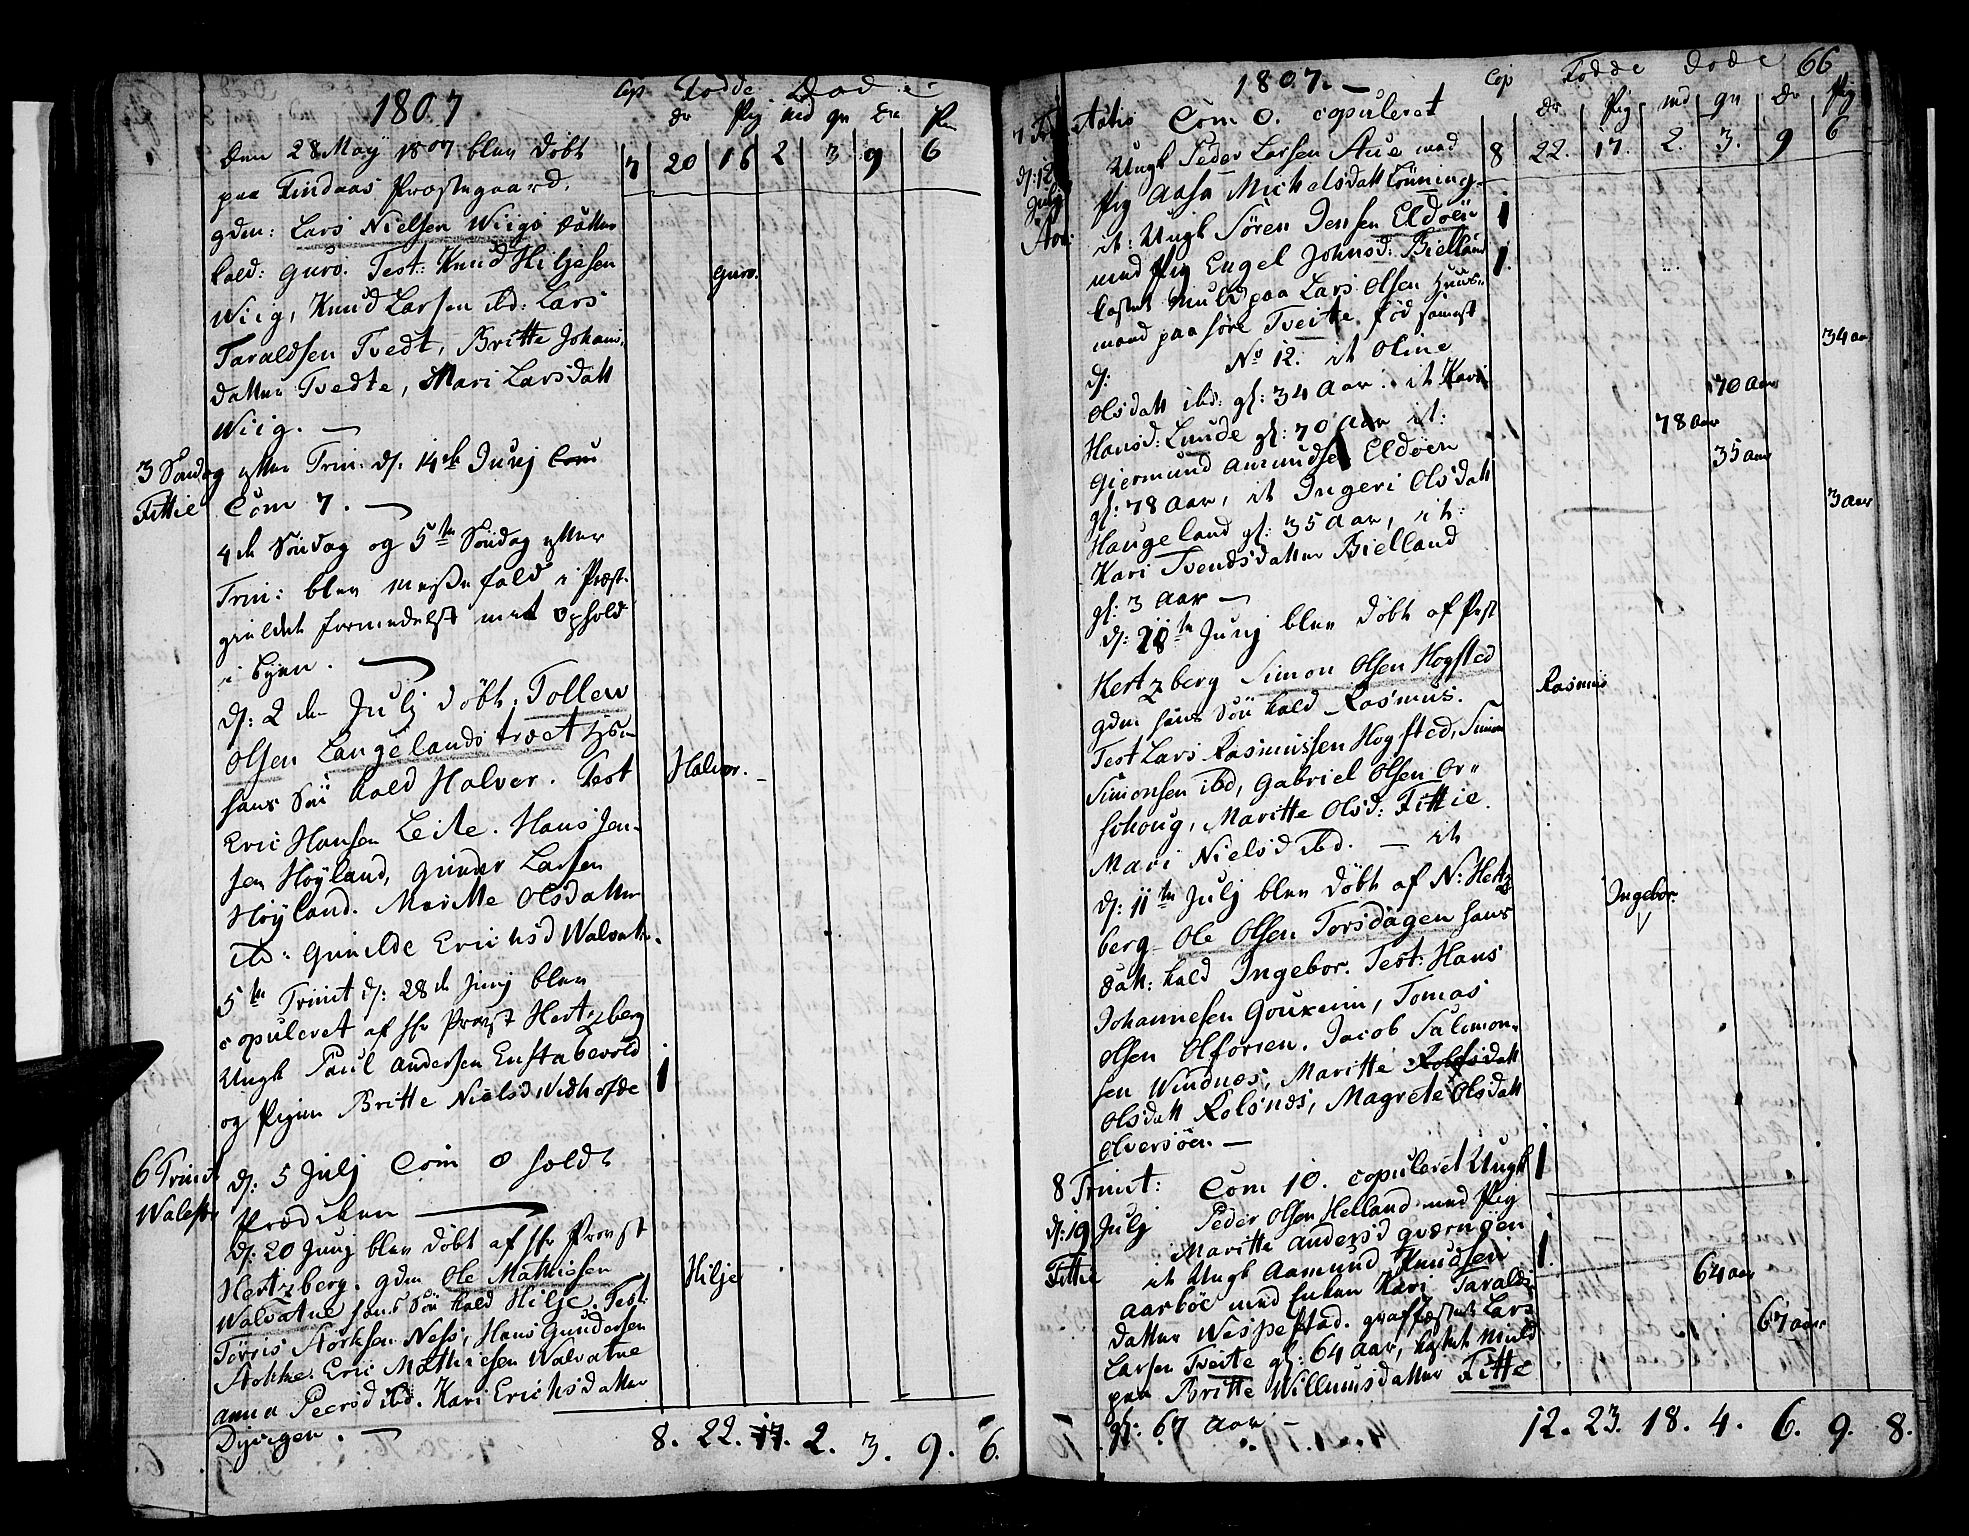 1807
Cop Födde Döde
dr Pig md qn Dr Pi
7 20 16 2 3 9 6
Den 28 Maÿ 1807 blev döbt
paa Findaas Præstegaard.
gdm: Lars Nielsen Wiigs datter
kald: Guro. Test: Knud Hiljesen
Guro.
Wiig, Knud Larsen ibd: Lars
Taraldsen Tvedt, Britte Johans
datter Tvedte, Mari Larsdatt
Wiig. —
3 Søndag efter Trin: d: 14de Junj Com
Fittie Com 7. —
4de Søndag og 5te Søndag efter
Trin: blev Messefald i Præst-
gieldet formedelst mit Ophold
i Byen. —
d: 2den Julj döbt: Tollew
Olsen Langelandstræet
hans Sön kald Halvor. Test
Halvor.
Eric Hansen Leite. Hans Jen-
sen Höÿland, Gunder Larsen
Höÿland. Maritte Olsdatter
ibd: Gunilde Erichsd Walvatn.
5te Trinit d: 28de Junj blev
copuleret af Hr Provst Hertzberg
Ungk Paul Andersen Enstabevold
og Pigen Britte Nielsd Widhofde
1
6 Trinit d: 5 Julj Com 0 holdt
Walest Prædiken —
d: 20 Junj blev döbt af Hr Provst
Hertzberg. gdm Ole Mathiesen
Hilje
Walvatne hans Sön kald Hilje. Test:
Törris Storksen Ness, Hans Gundersen
Stokke. Eric Mathiesen Walvatne
Anna Peersd ibd. Kari Erichsdatter
Djvigen. —
8. 22. 17. 2. 3. 9. 6.
1807. —
66
Cop Fødde Døde
dr Pig md qn dr Pig
8 22. 17. 2. 3. 9 6
7 Trinitatis Com 0. copuleret
d: 12 Julj Ungk Peder Larsen Aue med
Pig Aasa Michelsdatt Lönning
it: Ungk Sören Jensen Eldöen
1
med Pig Engel Johnsd: Bielland
1.
kastet Muld paa Lars Olsen Huus-
mand paa söre Tveite. föd
34 aar
d: No 12. it Oline
Olsdatt ibd: gl: 34 Aar. it Kari
70 Aar
Hansd: Lunde gl: 70 Aar it:
78 aar
Giermund Amundsen Eldöen
35 aar
gl: 78 Aar, it Ingeri Olsdatt
3 aar
Haugeland gl: 35 Aar, it:
Kari Svendsdatter Bielland
gl: 3 Aar —
d: 28te Junj blev döbt af Pvst
Hertzberg Simon Olsen Hogsted
Rasmus
gdm hans Sön kald Rasmus.
Test Lars Rasmussen Hogsted, Simon
Simonsen ibd, Gabriel Olsen Or-
schoug, Maritte Olsd: Fittie.
Mari Nielsd ibd. — it
d: 11te Julj blev döbt af N: Hertz
Ingebor.
berg Ole Olsen Torsdagen hans
Datt: kald Ingebor. Test: Hans
Johannesen Gouxeim, Tomas
Olsen Olforsen. Jacob Salomon-
sen Windnæs, Maritte Rolfsdatt
Olsdatt Rolsnæs, Magrete Olsdatt
Olversöen. —
8 Trinit: Com 10. copuleret Ungk
1
d: 19 Julj Peder Olsen Helland med Pig
Maritte Andersd Qværnöen
Fittie it Ungk Aamund Knudsen
1.
Aarböe med Enken Kari Taralds
64 aar
datter Wespestad. graffæstet Lars
67 aar
Larsen Tveite gl: 64 Aar, kastet Muld
paa Britte Willumsdatter Fitte
gl: 67 Aar —
12. 23. 18. 4. 6. 9. 8.